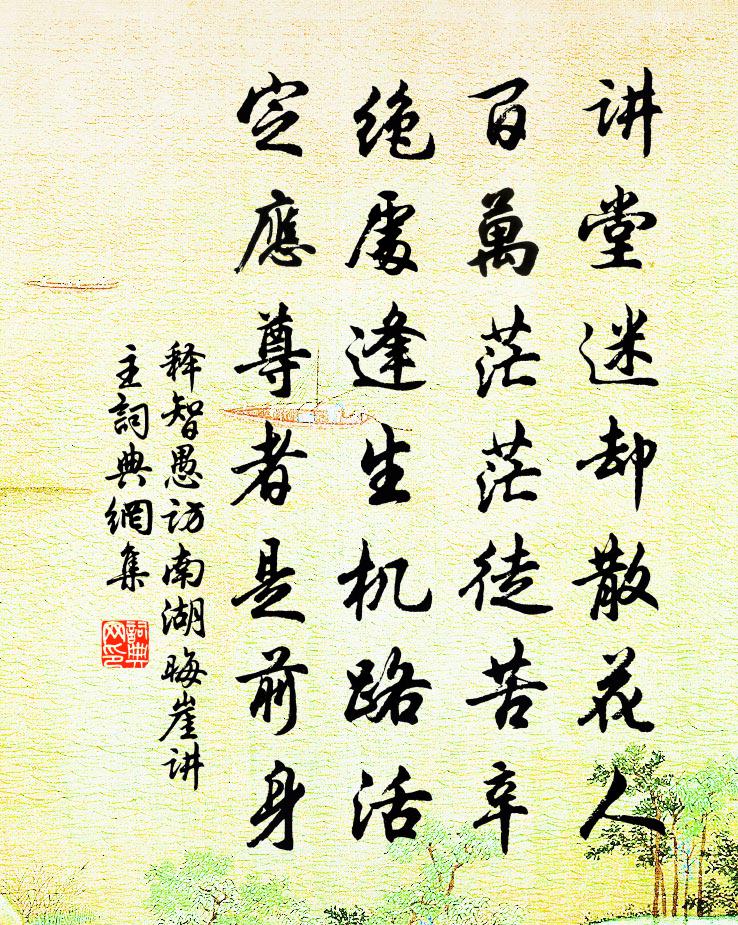 讲堂迷却散花人
百萬茫茫徒苦辛
绝處逢生机路活
定應尊者是前身
释智愚访南湖晦崖讲
主詞典網集
詞典
网印